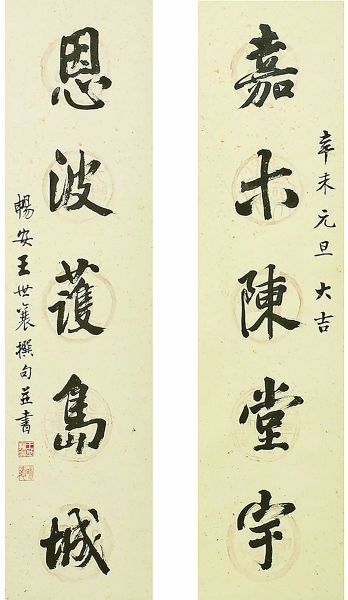 辛未元旦 大吉
嘉木陳堂宇
恩波護島城
暢安王世襄撰句並書